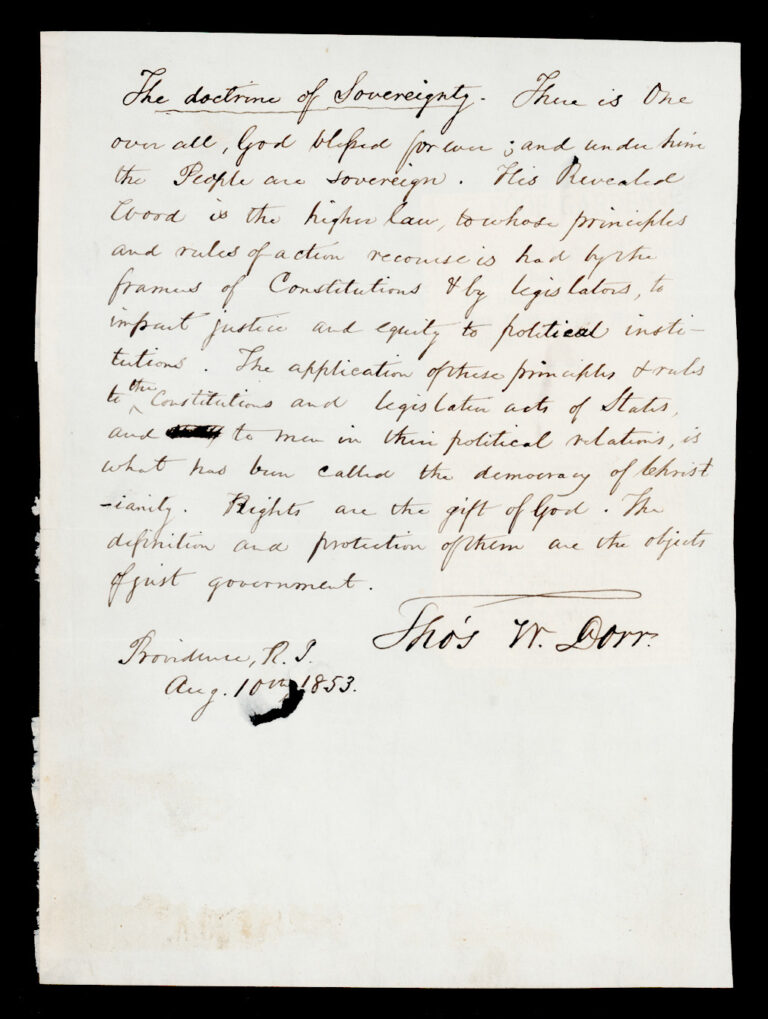 The doctrine of Sovereignty. There is One
over all, God blessed for ever; and under him
the People are sovereign. His Revealed
Word is the higher law, to whose principles
and rules of action recourse is had by the
framers of Constitutions & by legislators, to
impart justice and equity to political insti-
tutions. The application of these principles & rules
to the Constitutions and legislative acts of States,
and to men in their political relations, is
what has been called the democracy of Christ
-ianity. Rights are the gift of God. The
definition and protection of them are the objects
of just government.
Tho's W. Dorr.
Providence, R. I.
Aug. 10th 1853.